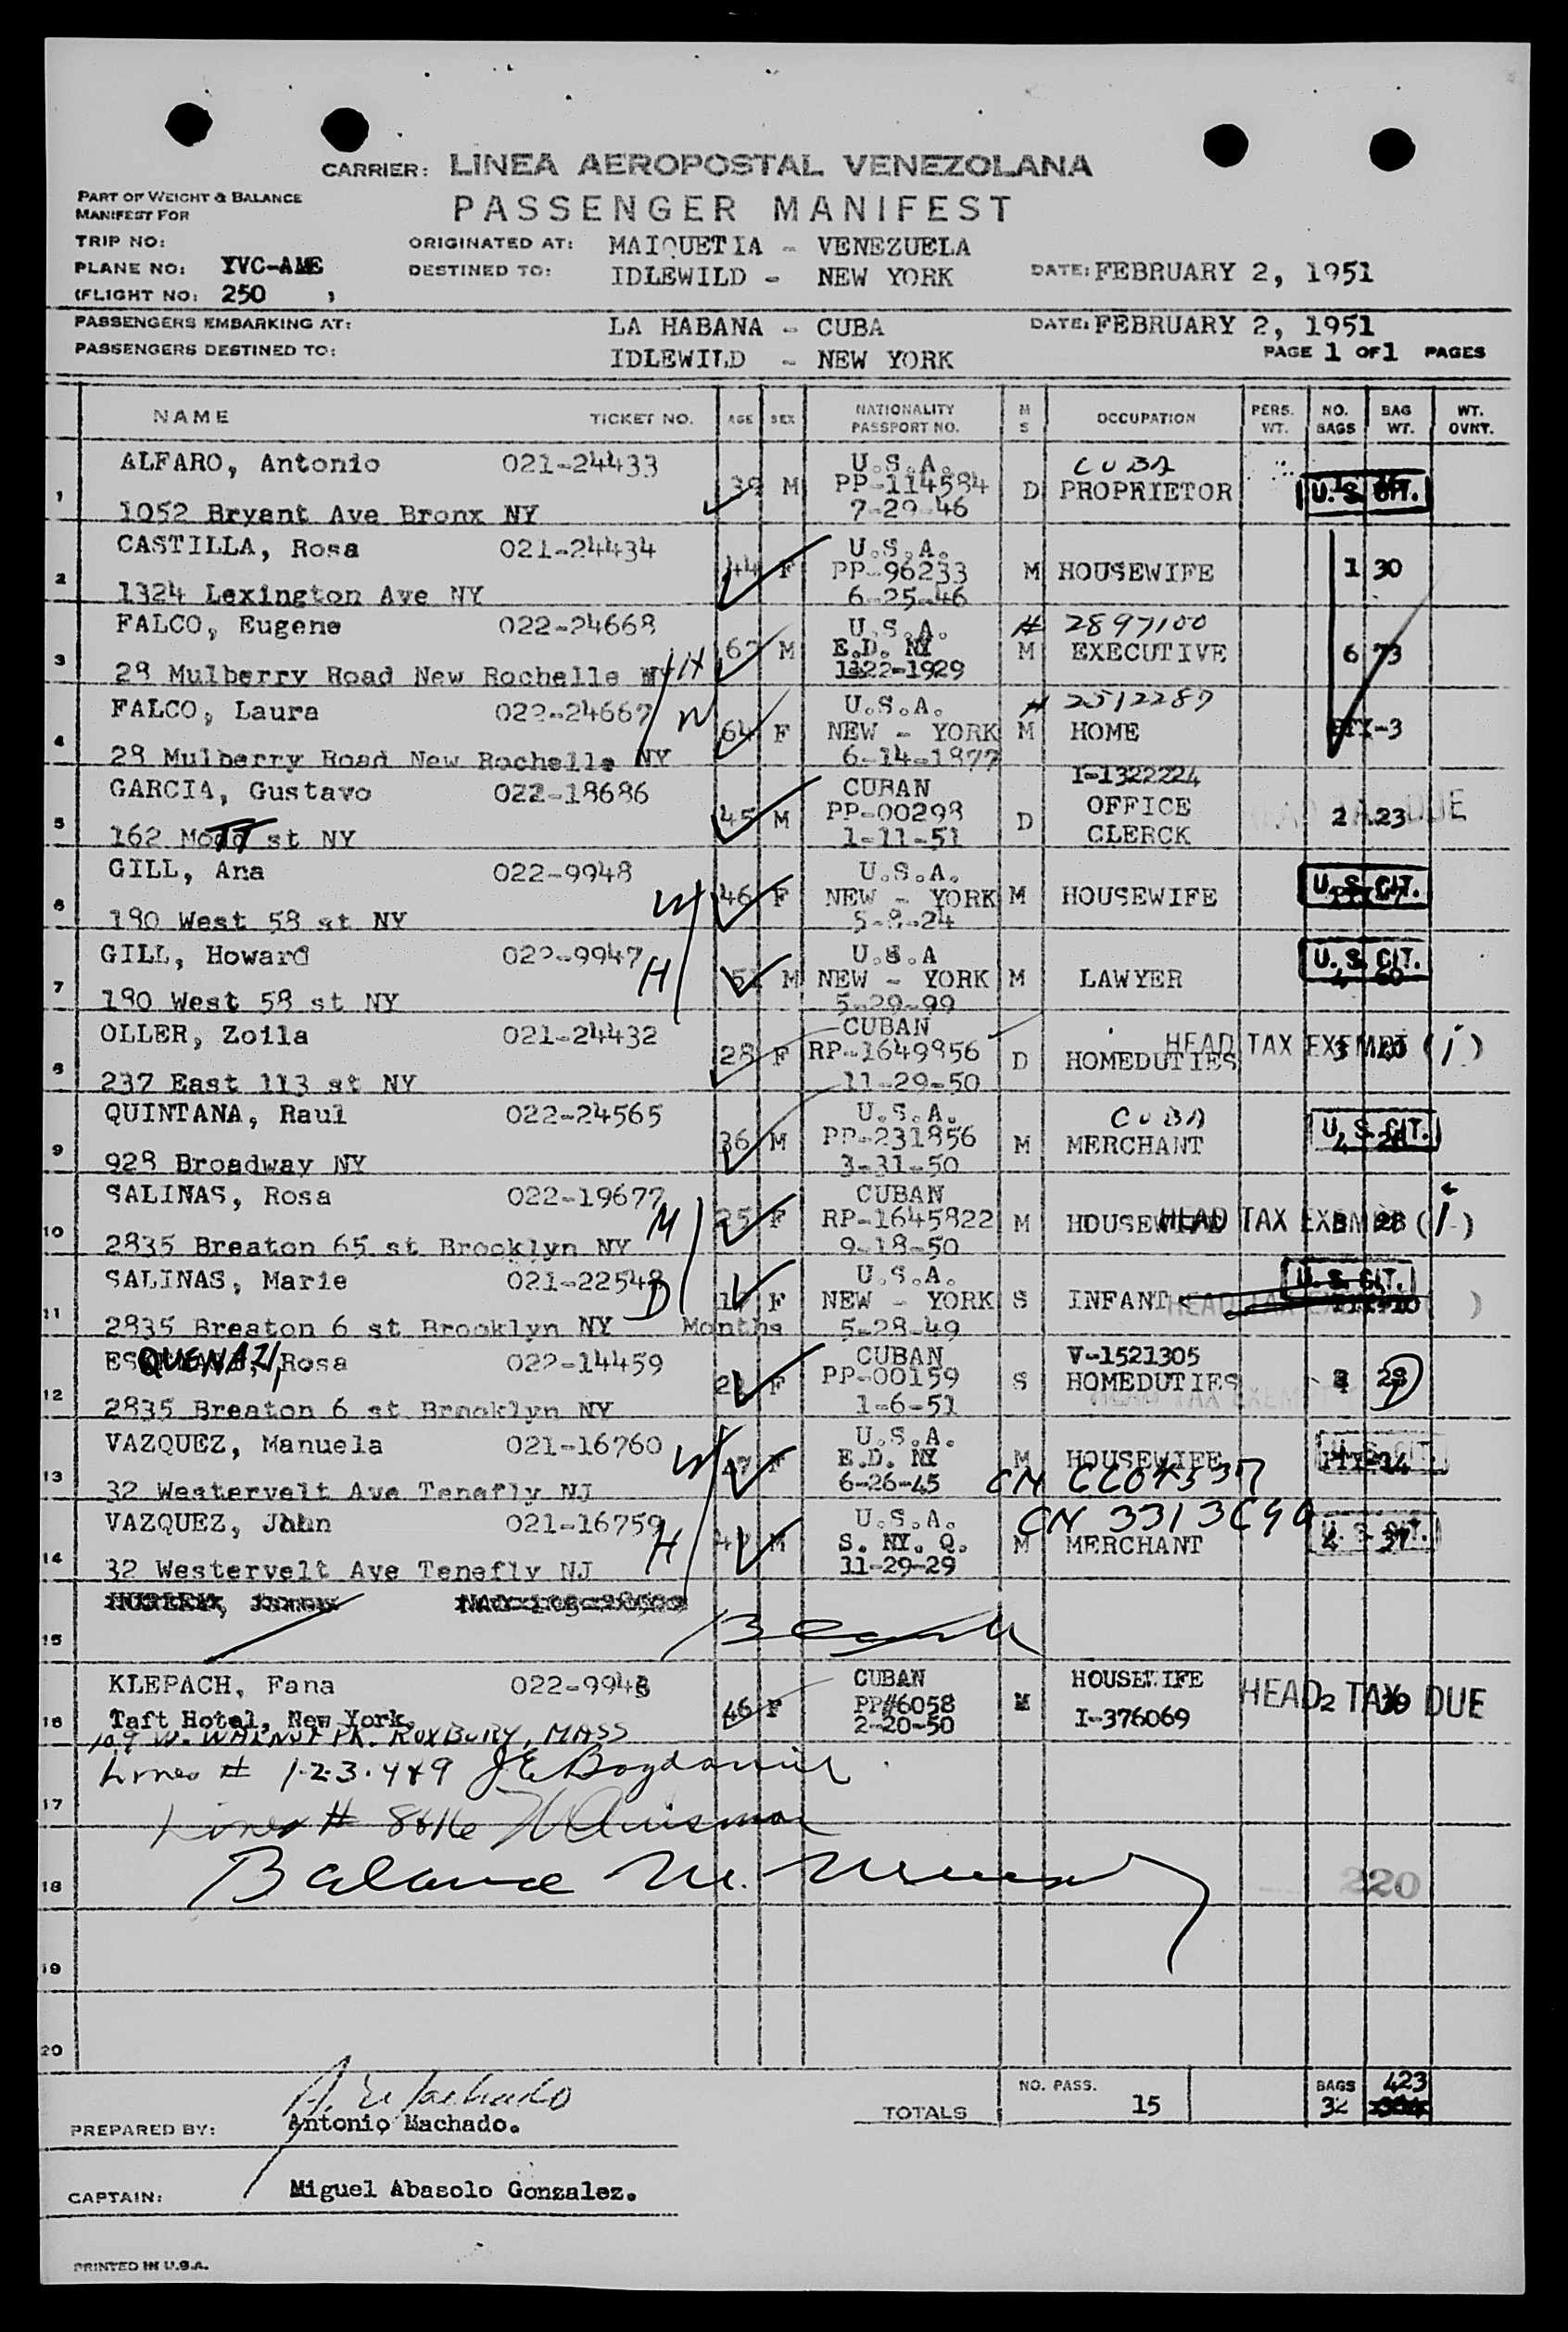 CARRIER: LINEA AEROPOSTAL VENEZOLANA
PART OF WEIGHT & BALANCE
MANIFEST FOR
PASSENGER MANIFEST
TRIP NO:
ORIGINATED AT: MAIQUETIA - VENEZUELA
PLANE NO: YVC-AME
DESTINED TO: IDLEWILD - NEW YORK DATE: FEBRUARY 2, 1951
(FLIGHT NO: 250 )
PASSENGERS EMBARKING AT: LA HABANA - CUBA DATE: FEBRUARY 2, 1951
PASSENGERS DESTINED TO: IDLEWILD - NEW YORK PAGE 1 OF 1 PAGES
NAME TICKET NO. AGE SEX NATIONALITY PASSPORT NO. M S OCCUPATION PERS. WT. NO. BAGS BAG WT. WT. OVRT.
ALFARO, Antonio 021-24433 U.S.A. CUBA
1 39 M PP-114584 D PROPRIETOR U.S. CIT.
1052 Bryant Ave Bronx NY 7-29-46
CASTILLA, Rosa 021-24434 U.S.A.
2 44 F PP-96233 M HOUSEWIFE 1 30
1324 Lexington Ave NY 6-25-46
FALCO, Eugene 022-24668 U.S.A. # 2897100
3 M E.D. NY M EXECUTIVE 6 73
28 Mulberry Road New Rochelle NY H -1929
FALCO, Laura 022-24667 W U.S.A. # 2512287
4 64 F NEW - YORK M HOME -3
28 Mulberry Road New Rochelle NY 6-14-1877
GARCIA, Gustavo 022-18686 CUBAN I-1322224
5 45 M PP-00298 D OFFICE CLERCK 2 23 HEAD TAX DUE
162 Mott st NY 1-11-51
GILL, Ana 022-9948 U.S.A.
6 W 46 F NEW - YORK M HOUSEWIFE U.S. CIT.
180 West 58 st NY 5-8-24
GILL, Howard 022-9947 U.S.A
7 H M NEW - YORK M LAWYER U.S. CIT.
180 West 58 st NY 5-29-99
OLLER, Zoila 021-24432 CUBAN
8 28 F RP-1649856 D HOMEDUTIES HEAD TAX EXEMPT (i)
237 East 113 st NY 11-29-50
QUINTANA, Raul 022-24565 U.S.A. CUBA
9 36 M PP-231856 M MERCHANT U.S. CIT.
928 Broadway NY 3-31-50
SALINAS, Rosa 022-19677 CUBAN
10 M 25 F RP-1645822 M HOUSEWIFE HEAD TAX EXEMPT (i)
2835 Breaton 65 st Brooklyn NY 9-18-50
SALINAS, Marie 021-22548 U.S.A. U.S. CIT.
11 D F NEW - YORK S INFANT HEAD TAX )
2835 Breaton 6 st Brooklyn NY Months 5-28-49
ESQUENAZI, Rosa 022-14459 CUBAN V-1521305
12 F PP-00159 S HOMEDUTIES HEAD TAX EXEMPT
2835 Breaton 6 st Brooklyn NY 1-6-51
VAZQUEZ, Manuela 021-16760 U.S.A.
13 W 47 F E.D. NY M HOUSEWIFE U.S. CIT.
32 Westervelt Ave Tenafly NJ 6-26-45 CN
VAZQUEZ, John 021-16759 U.S.A. CN
14 H M S. NY. Q. M MERCHANT U.S. CIT.
32 Westervelt Ave Tenafly NJ 11-29-29
15
KLEPACH, Fana 022-9948 CUBAN HOUSEWIFE
16 Taft Hotel, New York. 46 F PP#6058 M I-376069 HEAD TAX DUE 2 39
109 W. WALNUT PK. ROXBURY, MASS 2-20-50
Lines # 1.2.3.4&9
17
Lines # 8&16
18 Balance 220
19
20
TOTALS NO. PASS. 15 BAGS 32 423
PREPARED BY: Antonio Machado.
CAPTAIN: Miguel Abasolo Gonzalez.
PRINTED IN U.S.A.